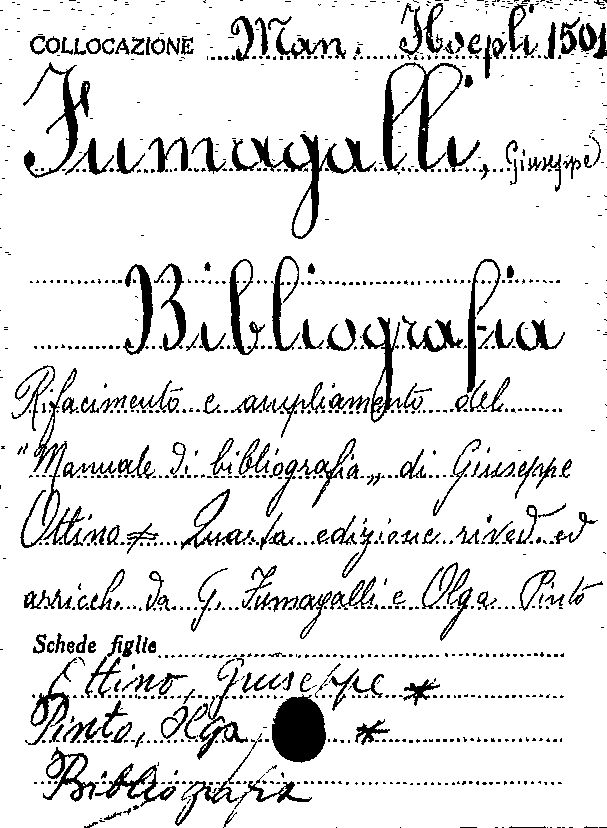 COLLOCAZIONE Man. Hoepli 1501
Fumagalli, Giuseppe
Bibliografia
Rifacimento e ampliamento del
"Manuale di bibliografia„ di Giuseppe
Ottino ≠ Quarta edizione rived. ed
arricch. da G. Fumagalli e Olga Pinto
Schede figlie
Ottino, Giuseppe *
Pinto, Olga *
Bibliografia